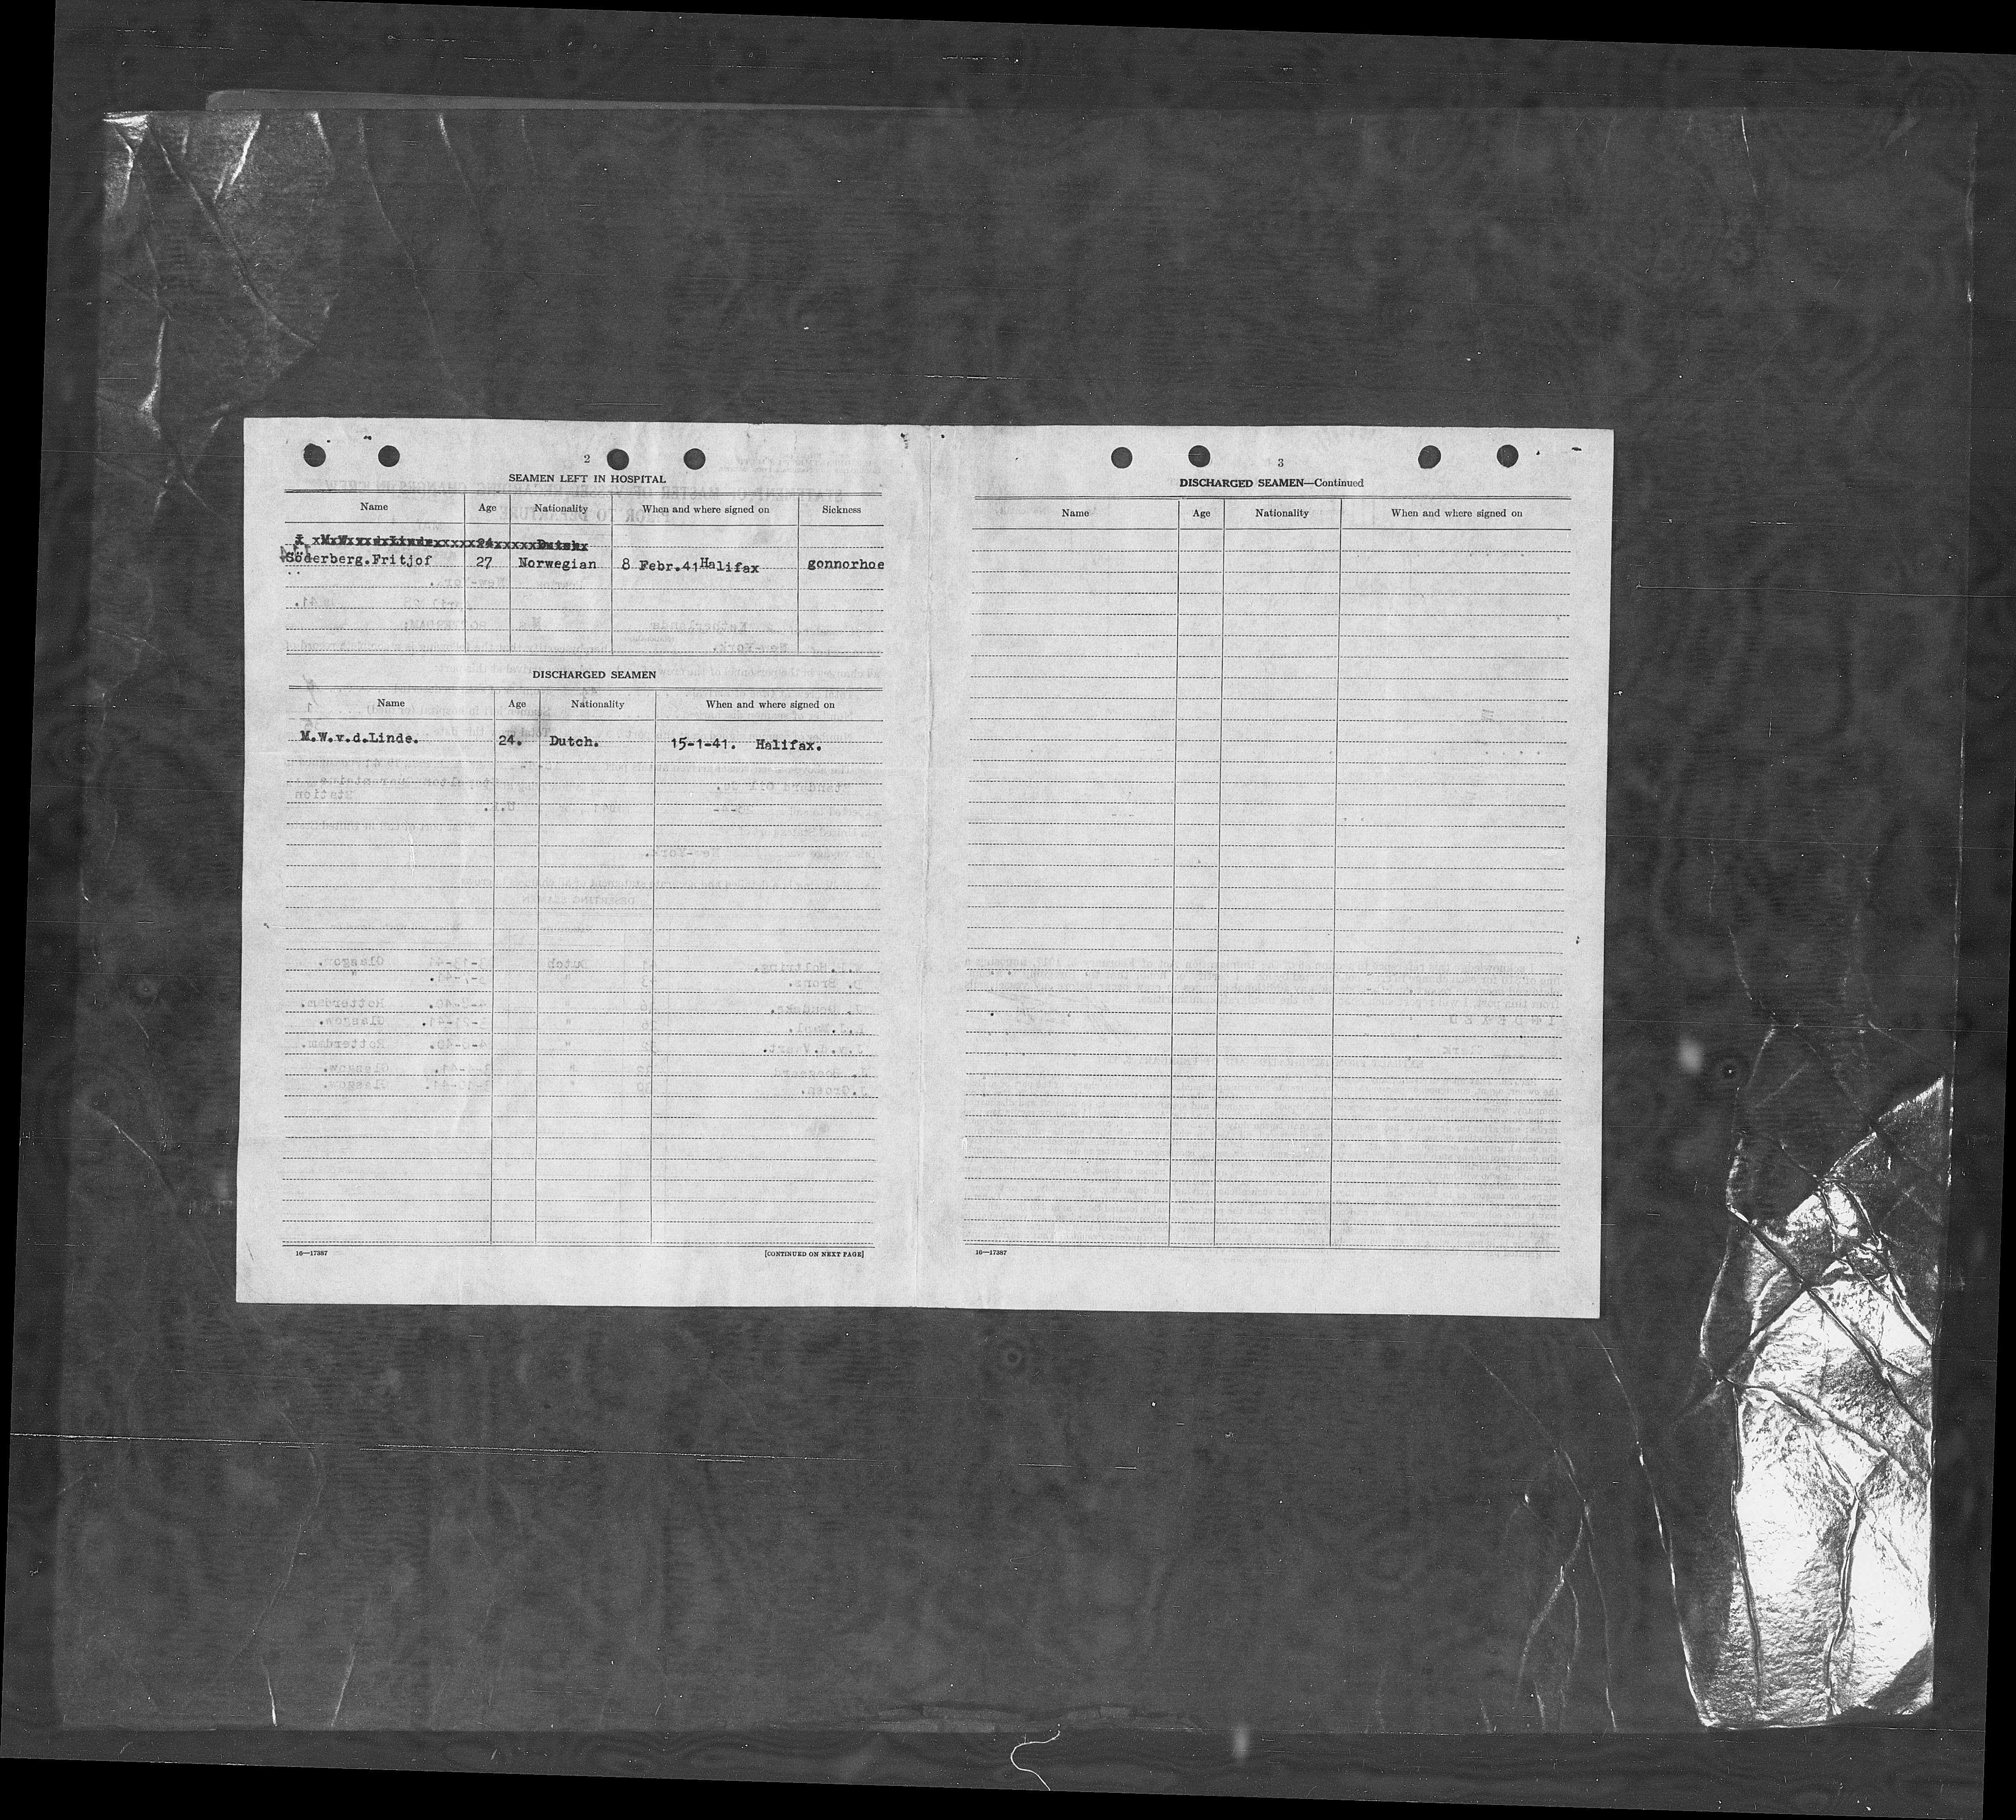 2
SEAMEN LEFT IN HOSPITAL
Name Age Nationality When and where signed on Sickness
M.W.v.d.Linde 24 Dutch
Söderberg.Fritjof 27 Norwegian 8 Febr.41 Halifax gonnorhoe
DISCHARGED SEAMEN
Name Age Nationality When and where signed on
M.W.v.d.Linde. 24. Dutch. 15-1-41. Halifax.
16—17387 [CONTINUED ON NEXT PAGE]
3
DISCHARGED SEAMEN—Continued
Name Age Nationality When and where signed on
16—17387